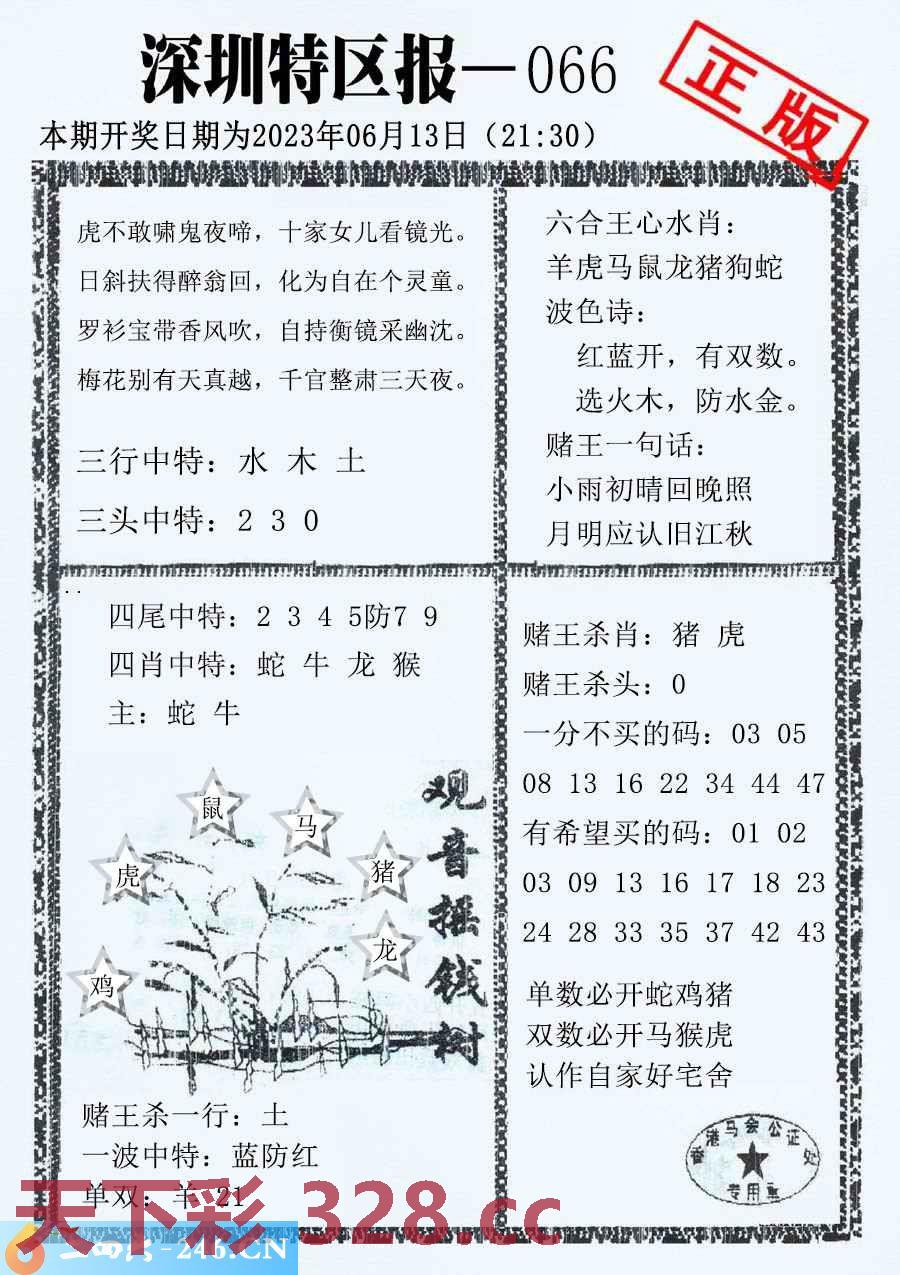 深圳特区报—066
正版
本期开奖日期为2023年06月13日（21:30）
虎不敢啸鬼夜啼，十家女儿看镜光。
日斜扶得醉翁回，化为自在个灵童。
罗衫宝带香风吹，自持衡镜采幽沈。
梅花别有天真越，千官整肃三天夜。
三行中特：水 木 土
三头中特：2 3 0
六合王心水肖：
羊虎马鼠龙猪狗蛇
波色诗：
红蓝开，有双数。
选火木，防水金。
赌王一句话：
小雨初晴回晚照
月明应认旧江秋
四尾中特：2 3 4 5防7 9
四肖中特：蛇 牛 龙 猴
主：蛇 牛
鼠
马
虎
猪
龙
鸡
观音摇钱树
赌王杀一行：土
一波中特：蓝防红
单双：羊 21
赌王杀肖：猪 虎
赌王杀头：0
一分不买的码：03 05
08 13 16 22 34 44 47
有希望买的码：01 02
03 09 13 16 17 18 23
24 28 33 35 37 42 43
单数必开蛇鸡猪
双数必开马猴虎
认作自家好宅舍
香港马会公证处
专用章
天下彩 328.cc
-246.CN